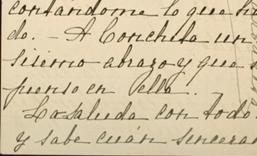 contandome lo que hi
do. - A Conchita un
simo abrazo y que
pienso en ella..
La saluda con todo
y sabe cuán sincera